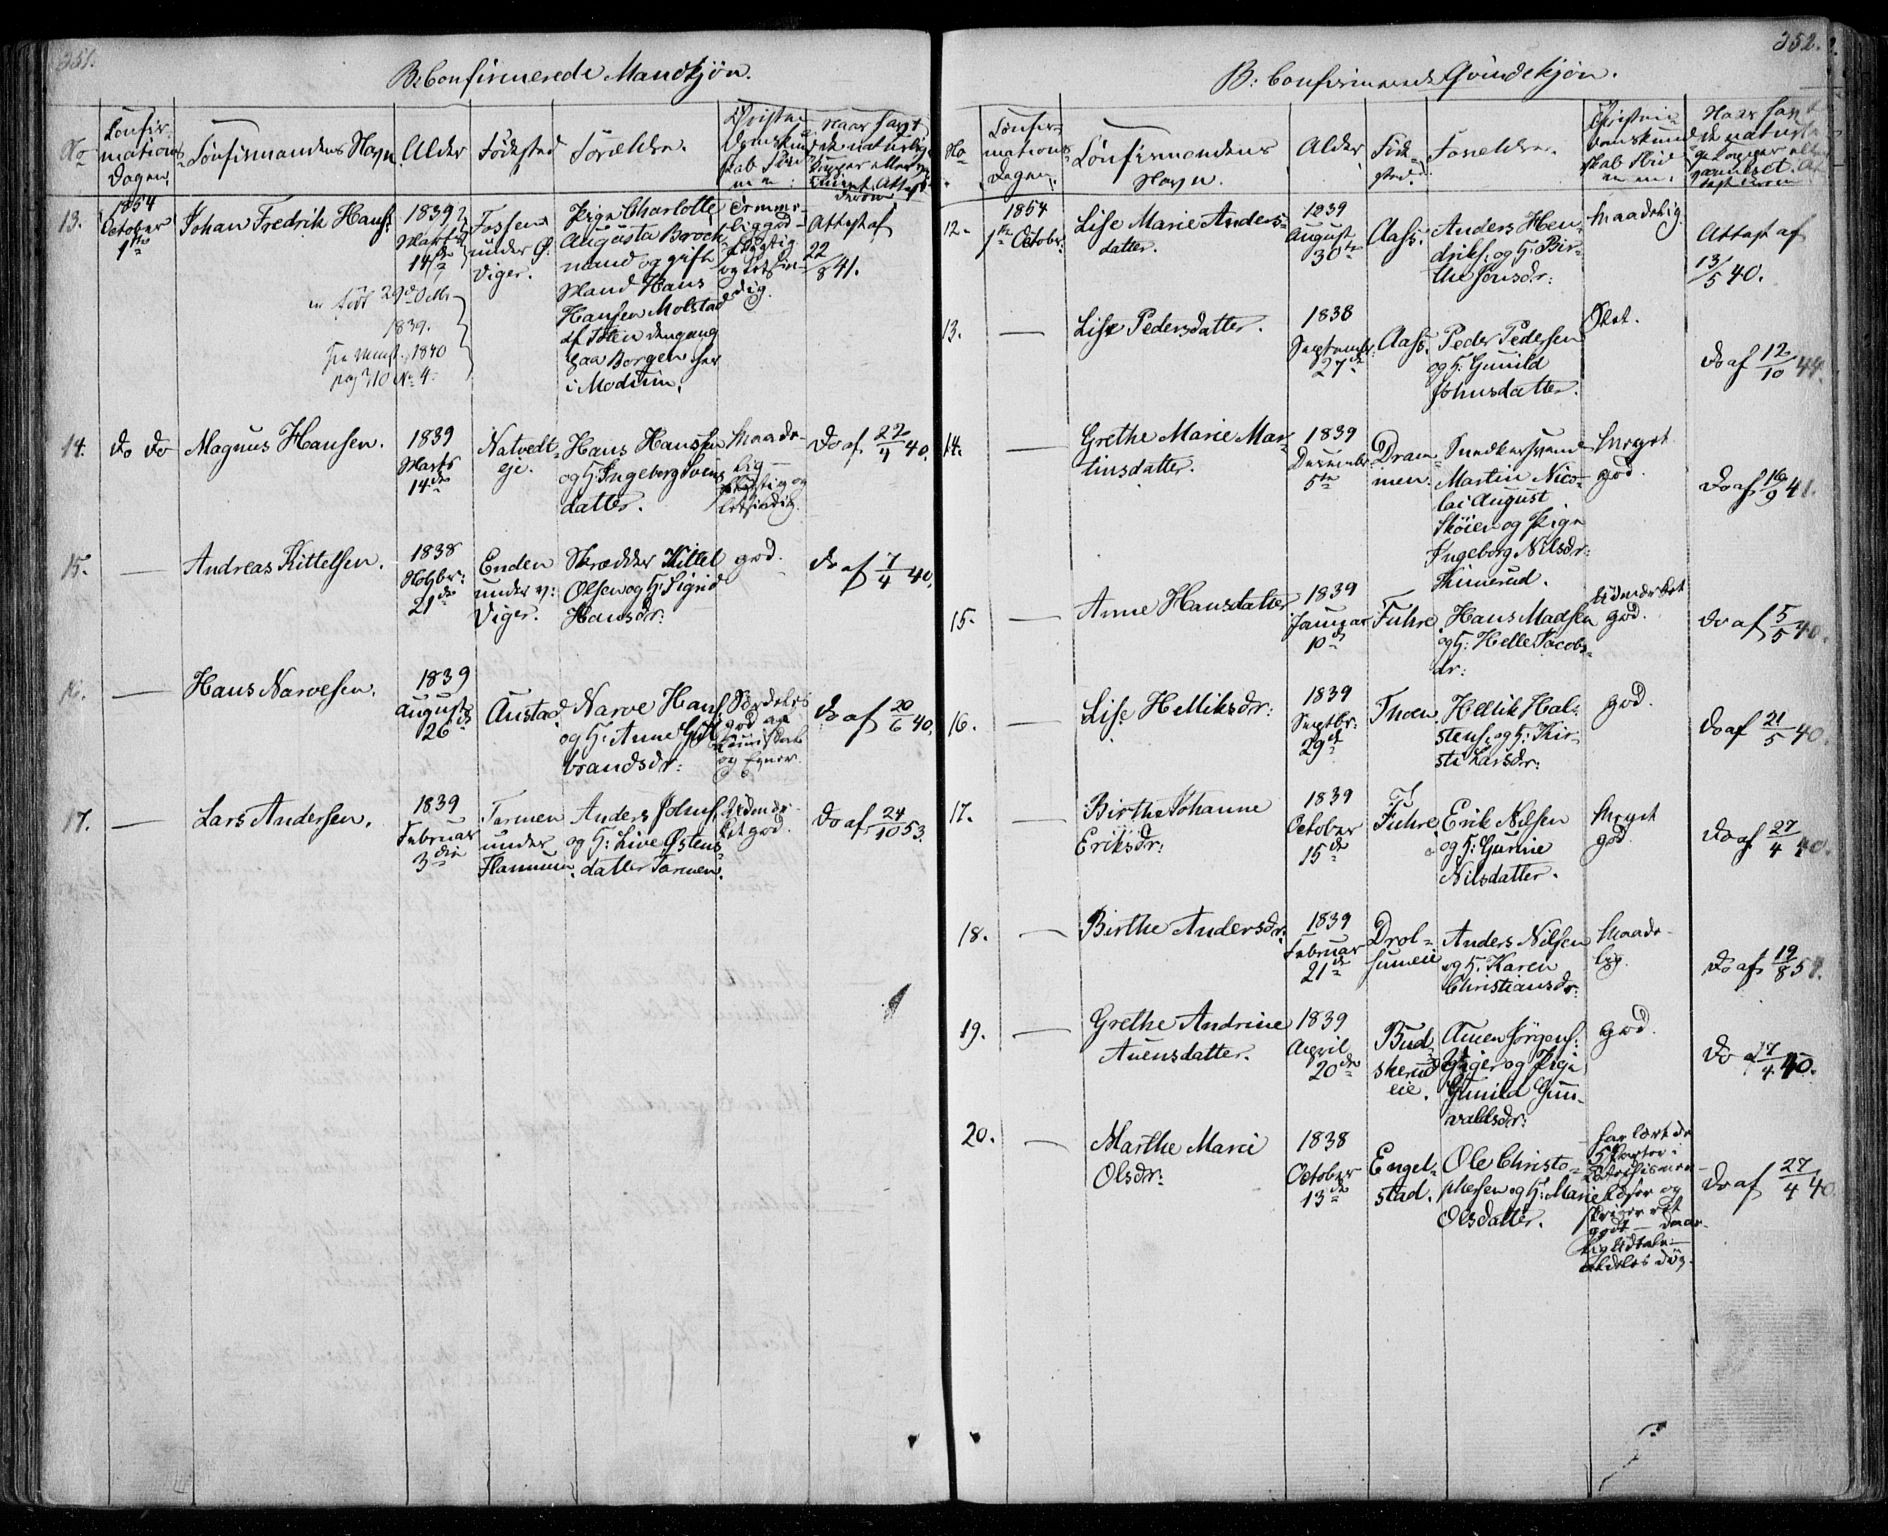 351.
B: Confirmerede Mandkjøn.
No
Confir-
mations
Dagen.
Confirmandens Navn
Alder
Fødested
Forældre.
Christen
domskund
skab
Naar havt
de naturlige
Kopper eller
vaccineret. Attest
derom
13.
1854
October
1ste
Johan Fredrik Hans:
1839?
Marts
14de
er født 29d
1839.
1840
pag 310 No 4.
Fossen
under Ø.
Viger.
Pige Charlotte
Augusta Brock-
mand og gift
Mand Hans
Hansen Molstad
af Toten dengang
paa Borgen her
i Modum.
Attest af
22/8 41.
14.
do do
Magnus Hansen.
1839
Marts
14de
Natvedt-
eje.
Hans Hanssen
og H: Ingeborg Svens
datter.
Maade-
lig —
do af 22/4 40.
15.
—
Andreas Kittelsen.
1838
Novbr:
21de
Enden
under v:
Viger.
Skrædder Kittel
Olsen og H: Sigrid
Hansdr:
god.
do af 7/4 40.
16.
—
Hans Narvesen.
1839
August
26de
Austad.
Narve Hans:
og H: Anne Gul
brandsdr:
Særdeles
god
do af 20/6 40.
17.
—
Lars Andersen.
1839
Februar
3die
Tormen
under
Flannum.
Anders Johns:
og H: Live Østens
datter Tormen.
god.
do af 24/10 53.
352.
B: Confirmerede Qvindekjøn.
No
Confir-
mations
Dagen.
Confirmandens
Navn.
Alder
Føde
sted.
Forældre.
Christen
domskund
skab
Naar havt
de naturli
ge Kopper eller
vaccineret.
12.
1854
1ste October:
Lise Marie Anders-
datter.
1839
August
30te
Aas.
Anders Hen-
driks: og H: Bir-
the Jonsdr:
Maadelig.
Attest af
13/5 40.
13.
—
Lise Pedersdatter.
1838
September:
27de
Aas.
Peder Pedersen
og H: Gunild
Johnsdatter.
Slet.
do af 12/10 44.
14.
—
Grethe Marie Mar-
tinsdatter.
1839
December
5te
Dram-
men.
Snedkersvend
Martin Nico-
lai August
Skøien og Pige
Ingeborg Nilsdr:
Meget
god.
do af 16/9 41.
15.
—
Anne Hansdatter
1839
Januar
10d
Fuhre.
Hans Madsen
og H: Helle Jacobs-
dr:
Udmærket
god.
do af 5/5 40.
16.
—
Lise Helliksdr:
1839
Septbr:
29d
Thoen.
Hellik Hal-
stens: og H: Kir-
sti Larsdr:
god.
do af 21/5 40.
17.
—
Birthe Johanne
Eriksdr:
1839
October
15de
Fuhre.
Erik Nilsen
og H: Gunine
Nilsdatter.
Meget
god.
do af 27/4 40.
18.
—
Birthe Andersdr:
1839
Februar
21de
Drol-
sumeie
Anders Nilsen
og H: Karen
Christiansdr:
Maade-
lig.
do af 19/8 54.
19.
—
Grethe Andrine
Auensdatter.
1839
April
20de
Bud
skerud
eie.
Auen Jørgens:
Viger og Pige
Gunild Gun-
valdsdr:
god.
do 27/4 40.
20.
—
Marthe Marie
Olsdr:
1838
October
13de
Engel-
stad.
Ole Christo-
phersen og H: Marie
Olsdatter.
har lært de
5 Parter i
læser og
skriver ret
godt — daar-
lig Udtale —
aldeles døv.
do af 27/4 40